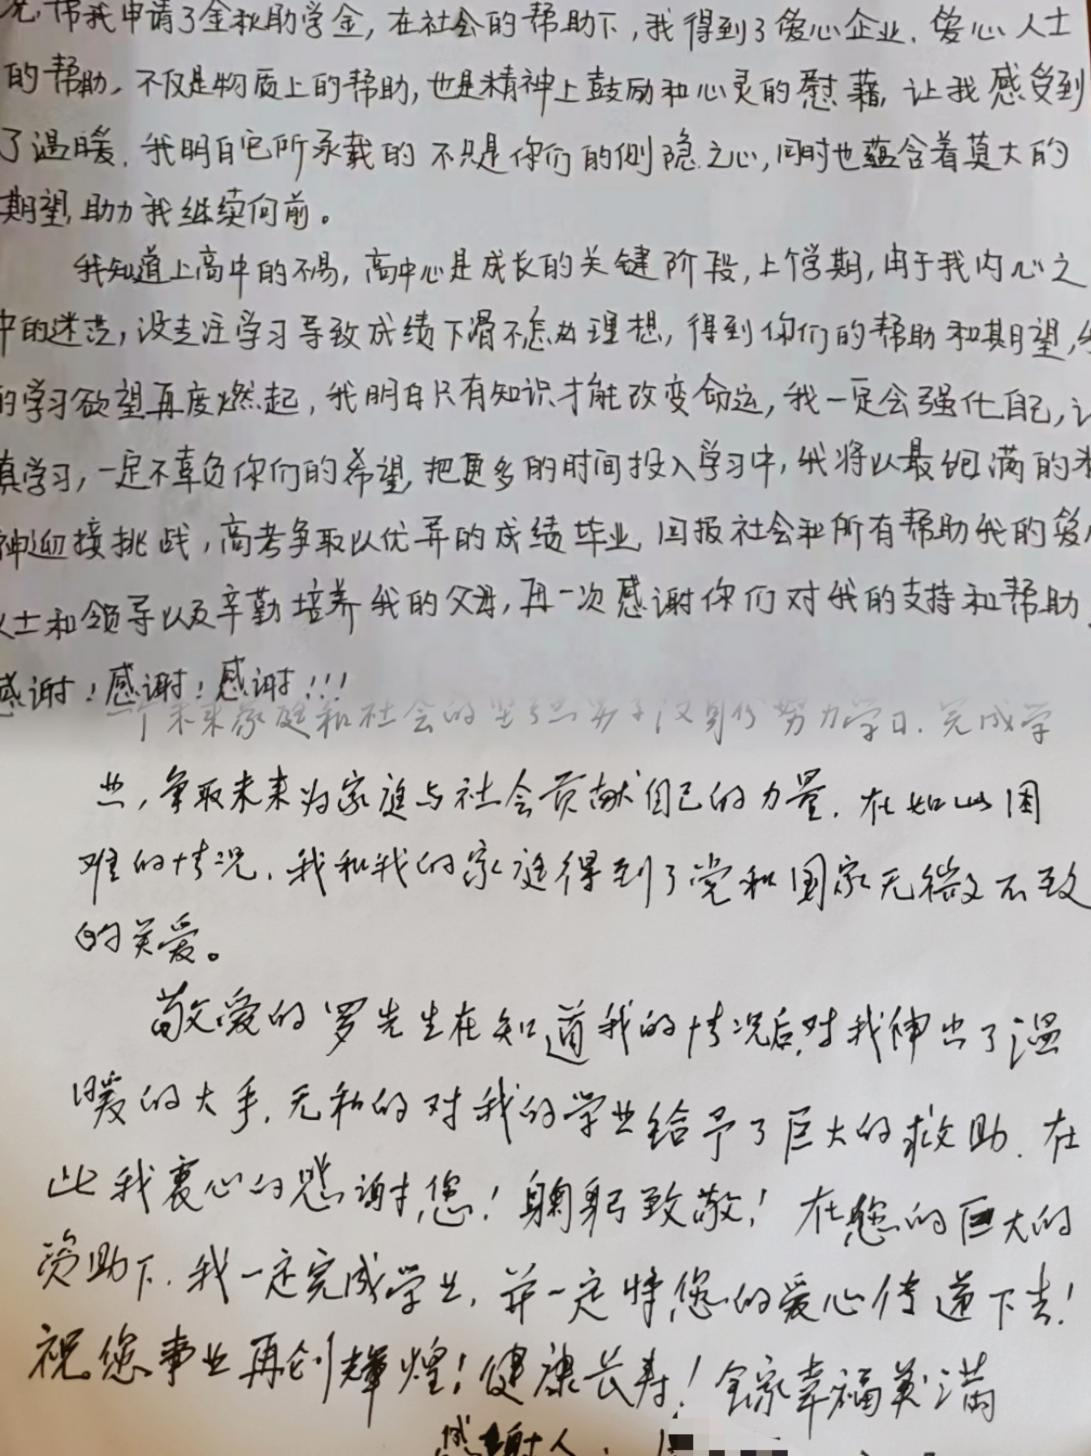 况,帮我申请了金秋助学金,在社会的帮助下,我得到了爱心企业、爱心人士
的帮助,不仅是物质上的帮助,也是精神上鼓励和心灵的慰藉,让我感受到
了温暖,我明白它所承载的不只是你们的恻隐之心,同时也蕴含着莫大的
期望,助力我继续向前。
我知道上高中的不易,高中心是成长的关键阶段,上个学期,由于我内心之
中的迷茫,没专注学习导致成绩下滑不怎么理想,得到你们的帮助和期望,
的学习欲望再度燃起,我明白只有知识才能改变命运,我一定会强化自己,认
真学习,一定不辜负你们的希望,把更多的时间投入学习中,我将以最饱满的
神迎接挑战,高考争取以优异的成绩毕业,回报社会和所有帮助我的爱心
人士和领导以及辛勤培养我的父母,再一次感谢你们对我的支持和帮助,
感谢!感谢!感谢!!!
未来家庭和社会的 努力学习,完成学
业,争取未来为家庭与社会贡献自己的力量,在如此困
难的情况,我和我的家庭得到了党和国家无微不致
的关爱。
敬爱的罗先生在知道我的情况后,对我伸出了温
暖的大手,无私的对我的学业给予了巨大的救助,在
此我衷心的感谢您!鞠躬致敬!在您的巨大的
资助下,我一定完成学业,并一定将您的爱心传递下去!
祝您事业再创辉煌!健康长寿!全家幸福美满
感谢人: